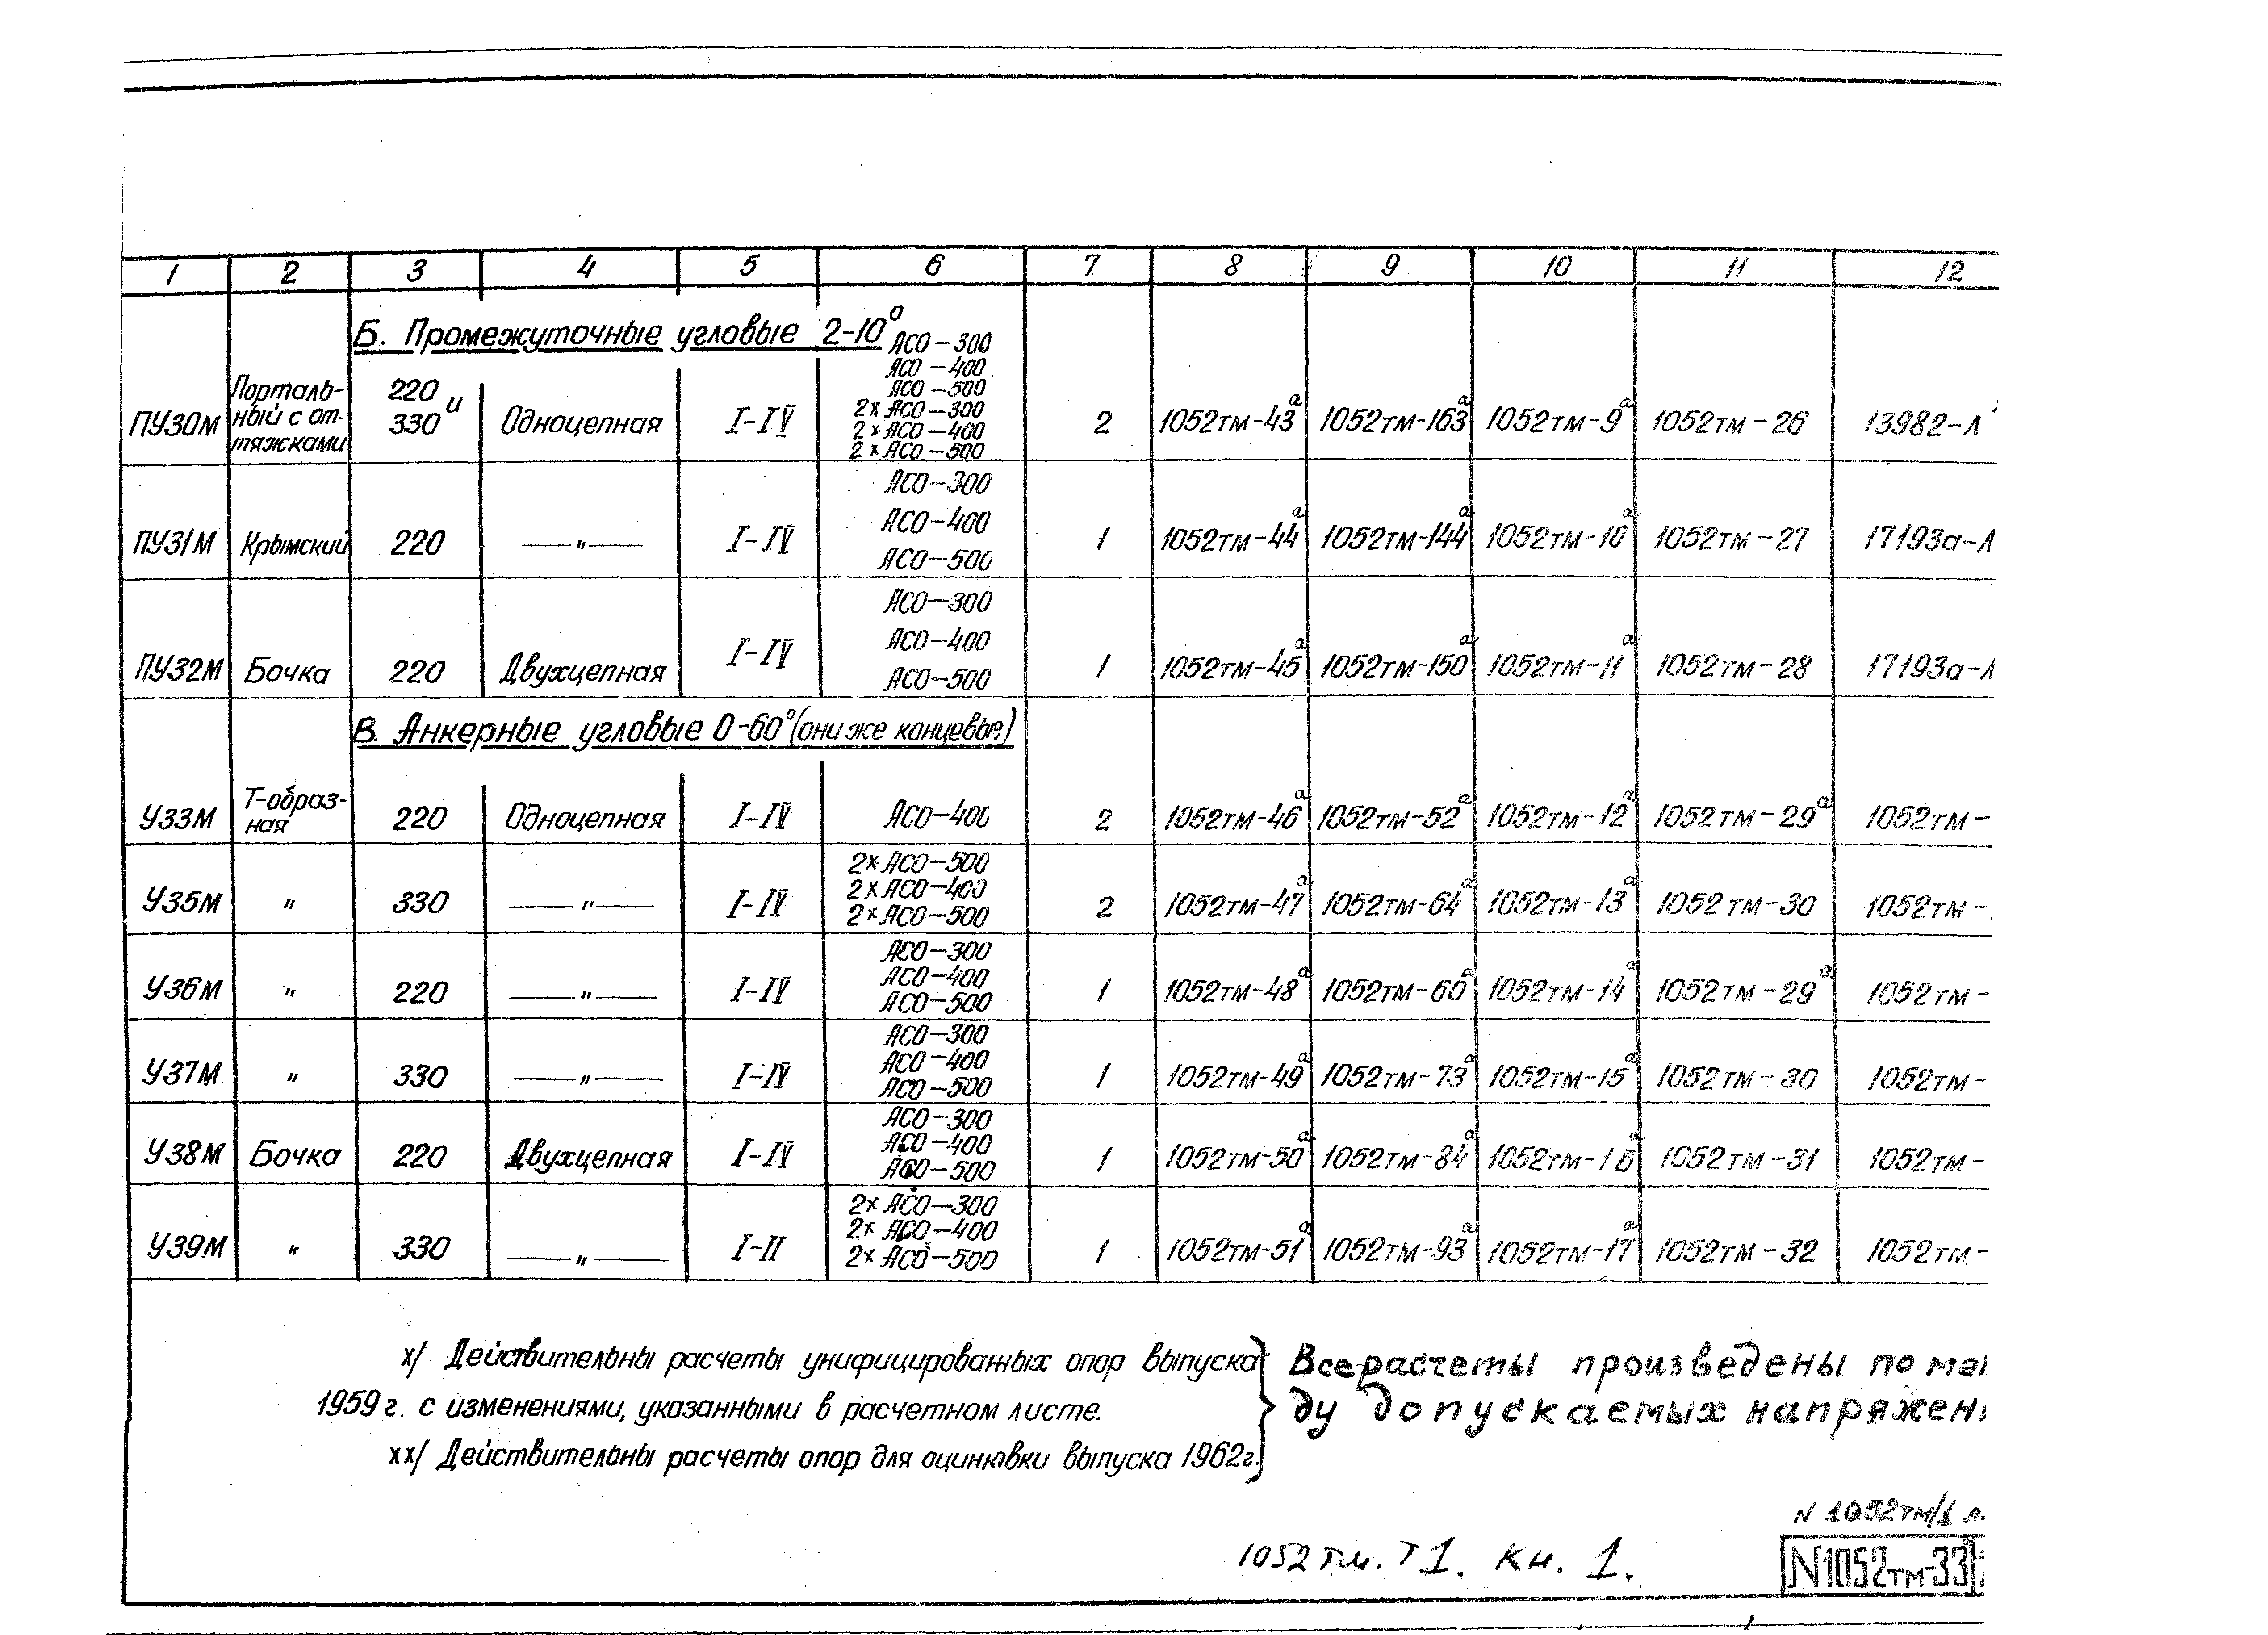 1 2 3 4 5 6 7 8 9 10 11 12
Б. Промежуточные угловые 2-10°
ПУ30М Порталь- 220 и Одноцепная I-IV АСО-300 2 1052тм-43а 1052тм-163а 1052тм-9а 1052тм-26 13982-Л
ный с от- 330 АСО-400
тяжками АСО-500
2×АСО-300
2×АСО-400
2×АСО-500
ПУ31М Крымский 220 —"— I-IV АСО-300 1 1052тм-44а 1052тм-144а 1052тм-10а 1052тм-27 17193а-Л
АСО-400
АСО-500
ПУ32М Бочка 220 Двухцепная I-IV АСО-300 1 1052тм-45а 1052тм-150а 1052тм-11а 1052тм-28 17193а-Л
АСО-400
АСО-500
В. Анкерные угловые 0-60° (они же концевые)
У33М Т-образ- 220 Одноцепная I-IV АСО-400 2 1052тм-46а 1052тм-52а 1052тм-12а 1052тм-29а 1052тм-
ная
У35М " 330 —"— I-IV 2×АСО-500 2 1052тм-47а 1052тм-64а 1052тм-13а 1052тм-30 1052тм-
2×АСО-400
2×АСО-500
У36М " 220 —"— I-IV АСО-300 1 1052тм-48а 1052тм-60а 1052тм-14а 1052тм-29а 1052тм-
АСО-400
АСО-500
У37М " 330 —"— I-IV АСО-300 1 1052тм-49а 1052тм-73а 1052тм-15а 1052тм-30 1052тм-
АСО-400
АСО-500
У38М Бочка 220 Двухцепная I-IV АСО-300 1 1052тм-50а 1052тм-84а 1052тм-16а 1052тм-31 1052тм-
АСО-400
АСО-500
У39М " 330 —"— I-II 2×АСО-300 1 1052тм-51а 1052тм-93а 1052тм-17а 1052тм-32 1052тм-
2×АСО-400
2×АСО-500
х/ Действительны расчеты унифицированных опор выпуска
1959г. с изменениями, указанными в расчетном листе.
хх/ Действительны расчеты опор для оцинковки выпуска 1962г.
Все расчеты произведены по ме
ду допускаемых напряжен
N 1052тм/1 л.
1052тм. т1. кн. 1.
N1052тм-33